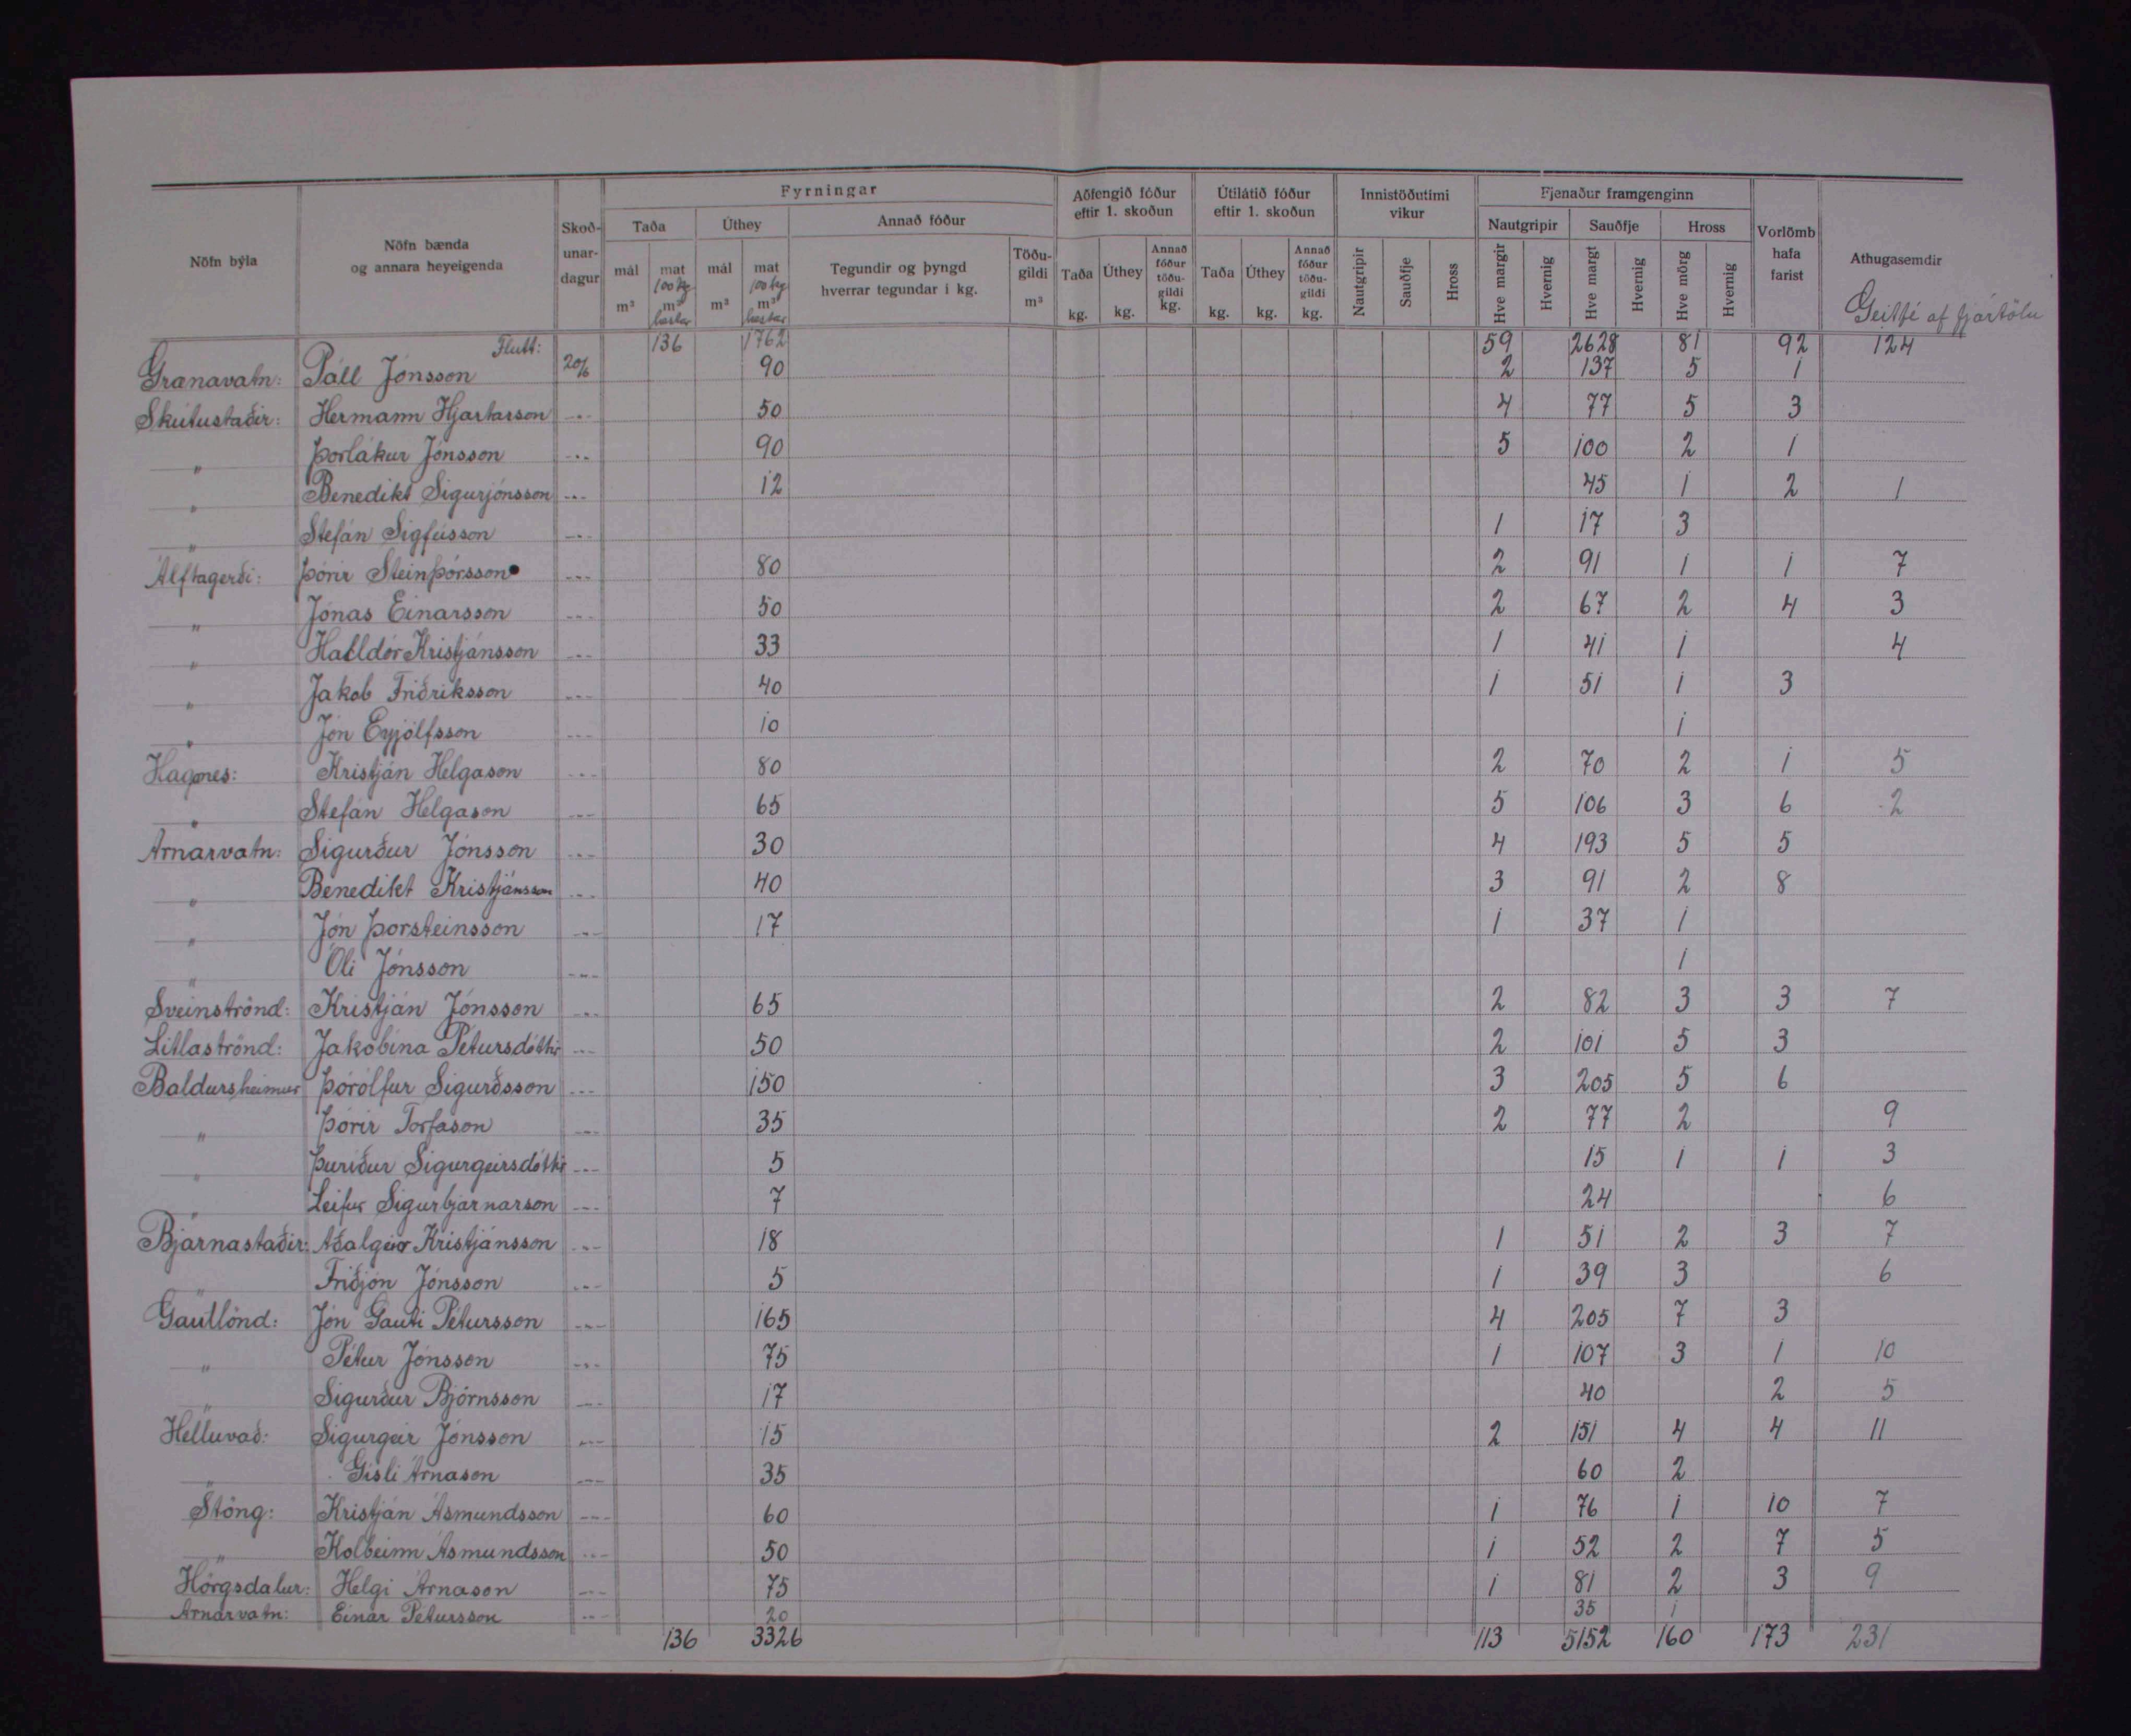 Fyrningar
Aðfengið fóður eftir 1. skoðun
Útilátið fóður eftir 1. skoðun
Innistöðutími vikur
Fjenaður framgenginn
Nöfn býla
Nöfn bænda og annara heyeigenda
Skoðunardagur
Taða
Úthey
Annað fóður
Nautgripir
Sauðfje
Hross
Vorlömb hafa farist
Athugasemdir
mál m³
mat 100 kg m³ hestar
mál m³
mat 100 kg m³ hestar
Tegundir og þyngd hverrar tegundar í kg.
Töðugildi m³
Taða kg.
Úthey kg.
Annað fóður töðugildi kg.
Taða kg.
Úthey kg.
Annað fóður töðugildi kg.
Nautgripir
Sauðfje
Hross
Hve margir
Hvernig
Hve margt
Hvernig
Hve mörg
Hvernig
Geitfé af fjártölu
Flutt: 136 1762 59 2628 81 92 124
Grænavatn: Páll Jónsson 20/6 90 2 137 5 1
Skútustaðir: Hermann Hjartarson --- 50 4 77 5 3
" Þorlákur Jónsson --- 90 5 100 2 1
" Benedikt Sigurjónsson --- 12 45 1 2 1
" Stefán Sigfússon --- 1 17 3
Álftagerði: Þórir Steinþórsson --- 80 2 91 1 1 7
" Jónas Einarsson --- 50 2 67 2 4 3
" Halldór Kristjánsson --- 33 1 41 1 4
" Jakob Friðriksson --- 40 1 51 1 3
" Jón Eyjólfsson --- 10 1
Haganes: Kristján Helgason --- 80 2 70 2 1 5
" Stefán Helgason --- 65 5 106 3 6 2
Arnarvatn: Sigurður Jónsson --- 30 4 193 5 5
" Benedikt Kristjánsson --- 40 3 91 2 8
" Jón Þorsteinsson --- 17 1 37 1
" Óli Jónsson --- 1
Sveinströnd: Kristján Jónsson --- 65 2 82 3 3 7
Litlaströnd: Jakobína Pétursdóttir --- 50 2 101 5 3
Baldursheimur Þórólfur Sigurðsson --- 150 3 205 5 6
" Þórir Torfason --- 35 2 77 2 9
" Þuríður Sigurgeirsdóttir --- 5 15 1 1 3
" Leifur Sigurbjarnarson --- 7 24 6
Bjarnastaðir: Aðalgeir Kristjánsson --- 18 1 51 2 3 7
" Friðjón Jónsson --- 5 1 39 3 6
Gautlönd: Jón Gauti Pétursson --- 165 4 205 7 3
" Pétur Jónsson --- 75 1 107 3 1 10
" Sigurður Björnsson --- 17 40 2 5
Helluvað: Sigurgeir Jónsson --- 15 2 151 4 4 11
" Gísli Árnason --- 35 60 2
Stöng: Kristján Ásmundsson --- 60 1 76 1 10 7
" Kolbeinn Ásmundsson --- 50 1 52 2 7 5
Hörgsdalur: Helgi Árnason --- 75 1 81 2 3 9
Arnarvatn: Einar Pétursson --- 20 35 1
136 3326 113 5152 160 173 231